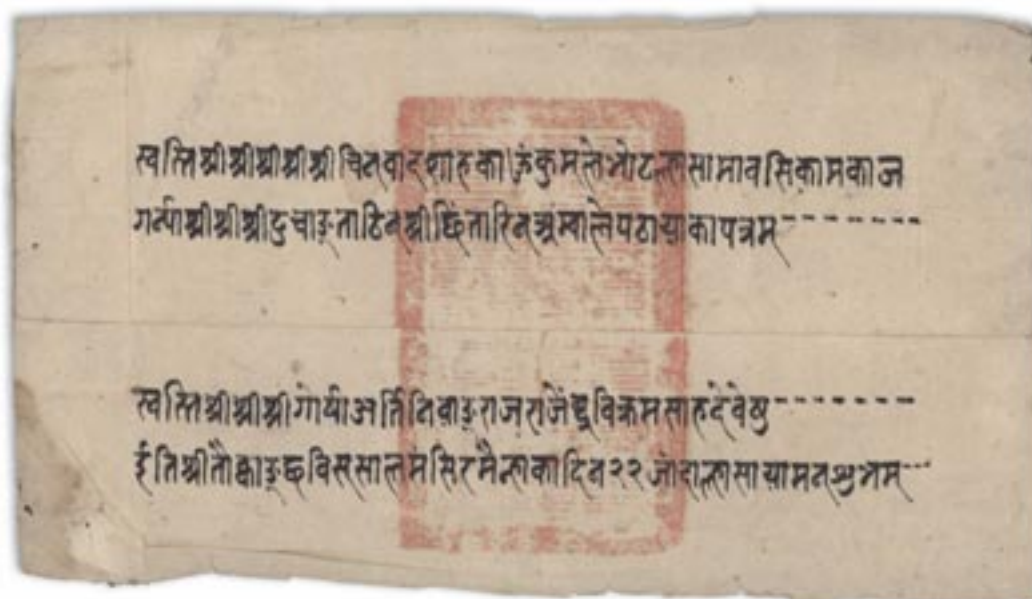 स्वस्ति श्री श्री श्री श्री श्री चिनवादशाहका हुंकुमले भोट ल्हासामा वसि कामकाज
गर्न्या श्री श्री श्री दुचाङ्ताठिन श्री छिंतारिन अंम्वाले पठायाका पत्रम् - - - - - - -
स्वस्ति श्री श्री श्री गोर्षा अर्तिनिवाङ् राजराजेंद्र विक्रमसाहदेवेषु - - - - - - -
ईति श्री तौक्वाङ् छविस साल मंसिर मैन्हाका दिन २२ जांदा ल्हासा याम न शुभम् - - -